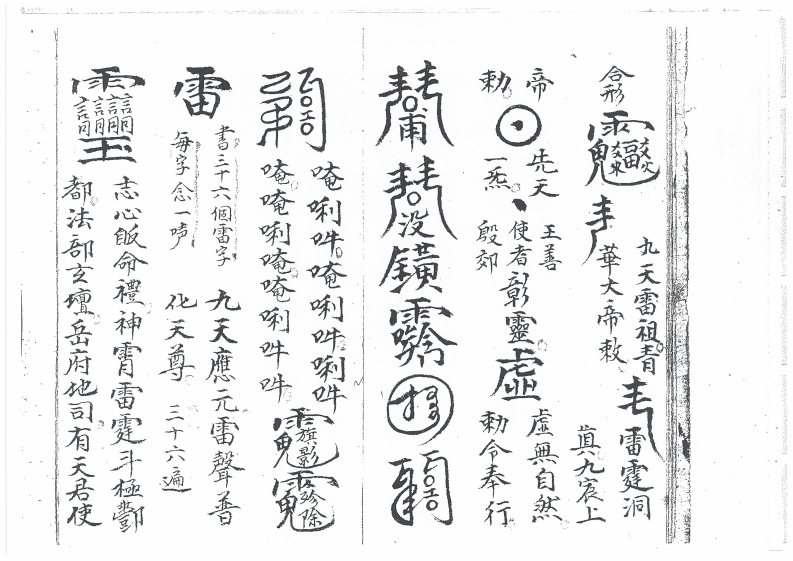 合形
九天雷祖青
華大帝敕
雷霆洞
眞九宸上
帝
敕
先天
一炁
王善
使者
殷郊
彰靈
虛
虛無自然
勅令奉行
没
鐄
唵唎吽唵唎吽唎吽
唵唵唎唵唵唎吽吽
旗影
殄除
雷
書三十六個雷字
每字念一声
九天應元雷聲普
化天尊
三十六遍
志心皈命禮神霄雷霆斗極酆
都法部玄壇岳府地司有天君使